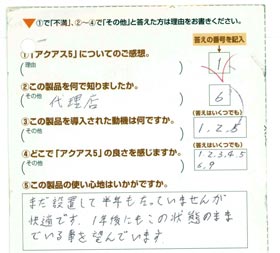 ①で「不満」、②~④で「その他」と答えた方は理由をお書きください。
答えの番号を記入
①「アクアス5」についてのご感想。
(理由
)
1
②この製品を何で知りましたか。
(その他
代理店
)
6
③この製品を導入された動機は何ですか。
(答えはいくつでも)
(その他
)
1.2.5
④どこで「アクアス5」の良さを感じますか。
(答えはいくつでも)
(その他
)
1.2.3.4.5
6.9
⑤この製品の使い心地はいかがですか。
まだ設置して半年もたっていませんが
快適です。1年後にもこの状態のまま
でいる事を望んでいます。